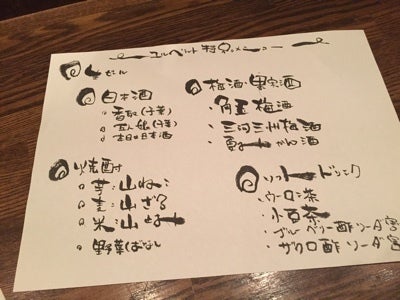 エルベルト 特別メニュー
生ビール
日本酒
香取(千葉)
五人娘(千葉)
本日の日本酒
焼酎
芋:山ねこ
麦:山ざる
米:山ほたる
野菜ばなし
梅酒・果実酒
・角玉梅酒
・三河三州梅酒
みかん酒
ソフトドリンク
・ウーロン茶
・小豆茶
ブルーベリー酢ソーダ割
・ザクロ酢ソーダ割